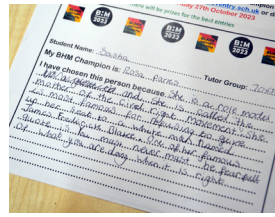 entry.sch.uk or
27th October 2023
will be prizes for the best entries
BHM 2023
BHM 2023
BHM 2023
Student Name: Sasha
Tutor Group:
My BHM Champion is: Rosa Parks
I have chosen this person because She is a role model
and She is called 'the
mother of the Civil Right movement'. She
is most famous for refusing to give
up her seat to a white man named
James Frederick Blake. One of her famous
quote is 'you must never be fearfull
of what you are doing when it is right.